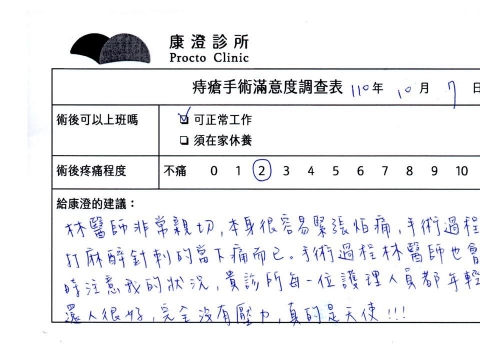 康澄診所
Procto Clinic
痔瘡手術滿意度調查表 110年 10 月 7 日
術後可以上班嗎
可正常工作
須在家休養
術後疼痛程度 不痛 0 1 2 3 4 5 6 7 8 9 10
給康澄的建議：
林醫師非常親切，本身很容易緊張怕痛，手術過程
打麻醉針刺的當下痛而已。手術過程林醫師也會
時注意我的狀況，貴診所每一位護理人員都年輕
還人很好，完全沒有壓力，真的是天使!!!